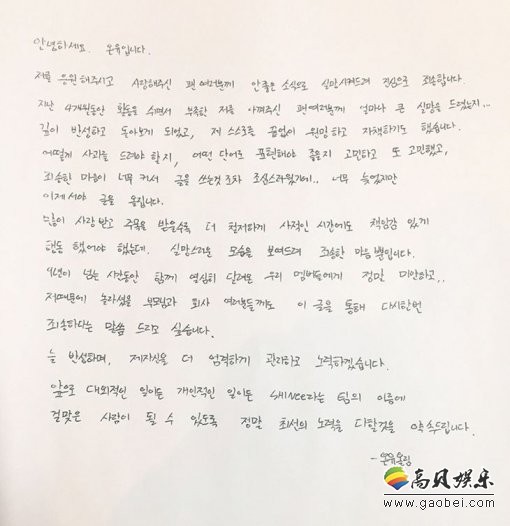 안녕하세요. 온유입니다.
저를 응원해주시고 사랑해주신 팬 여러분께 안좋은 소식으로 실망시켜드려 진심으로 죄송합니다.
지난 4개월동안 활동을 쉬면서 부족한 저를 아껴주신 팬여러분께 얼마나 큰 실망을 드렸는지...
깊이 반성하고 돌아보게 되었고, 제 스스로를 끝없이 원망하고 자책하기도 했습니다.
어떻게 사과를 드려야 할지, 어떤 단어로 표현해야 좋을지 고민하고 또 고민했고,
죄송한 마음이 너무 커서 글을 쓰는것 조차 조심스러웠기에.. 너무 늦었지만
이제서야 글을 올립니다.
많이 사랑받고 주목을 받을수록 더 철저하게 사적인 시간에도 책임감 있게
행동 했어야 했는데. 실망스러운 모습을 보여드려 죄송한 마음 뿐입니다.
9년이 넘는 시간동안 함께 열심히 달려온 우리 멤버들에게 정말 미안하고..
저때문에 놀라셨을 부모님과 회사 여러분들께도 이 글을 통해 다시한번
죄송하다는 말씀 드리고 싶습니다.
늘 반성하며, 제자신을 더 엄격하게 관리하고 노력하겠습니다.
앞으로 대외적인 일이든 개인적인 일이든 SHINee라는 팀의 이름에
걸맞은 사람이 될 수 있도록 정말 최선의 노력을 다할것을 약속드립니다.
-온유올림
高贝娱乐
www.gaobei.com